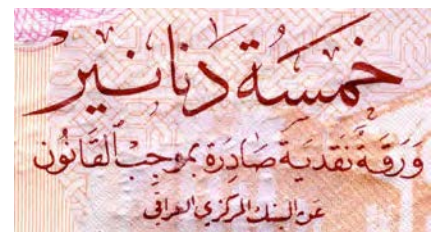 خمسة دنانير
وَرَقَة نَقدِيَة صَادِرَة بمُوجِب القَانُون
عن البنك المركزي العراقي